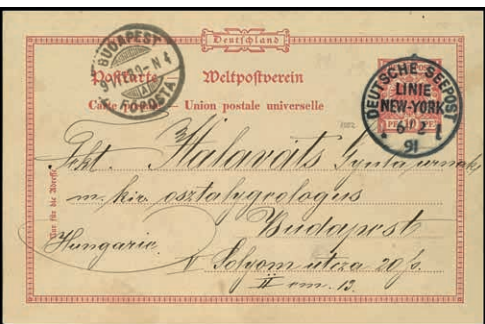 Deutschland
Postkarte Weltpostverein
Carte postale — Union postale universelle
BUDAPEST
FŐPOSTA
DEUTSCHE SEEPOST
LINIE
NEW-YORK
91
Nur für die Adresse
Halaváts Gyula urnak
m. kir. osztálygeologus
Budapest
Hungaria
Solyom utcza 20/s.
II em. 13.